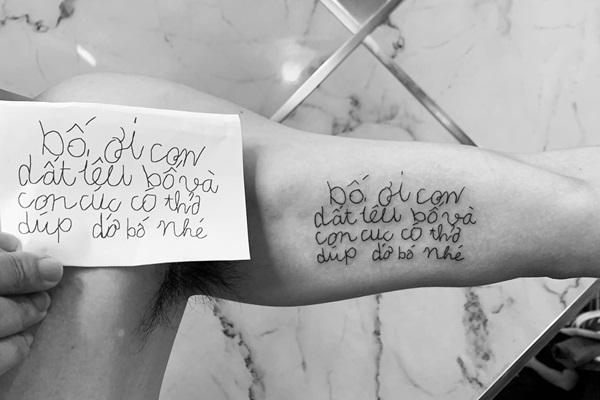 bố ơi con
dất lêu bố và
con cuc cõ thơ
dúp dỡ bố nhé
bố ơi con
dất lêu bố và
con cuc cõ thơ
dúp dỡ bố nhé